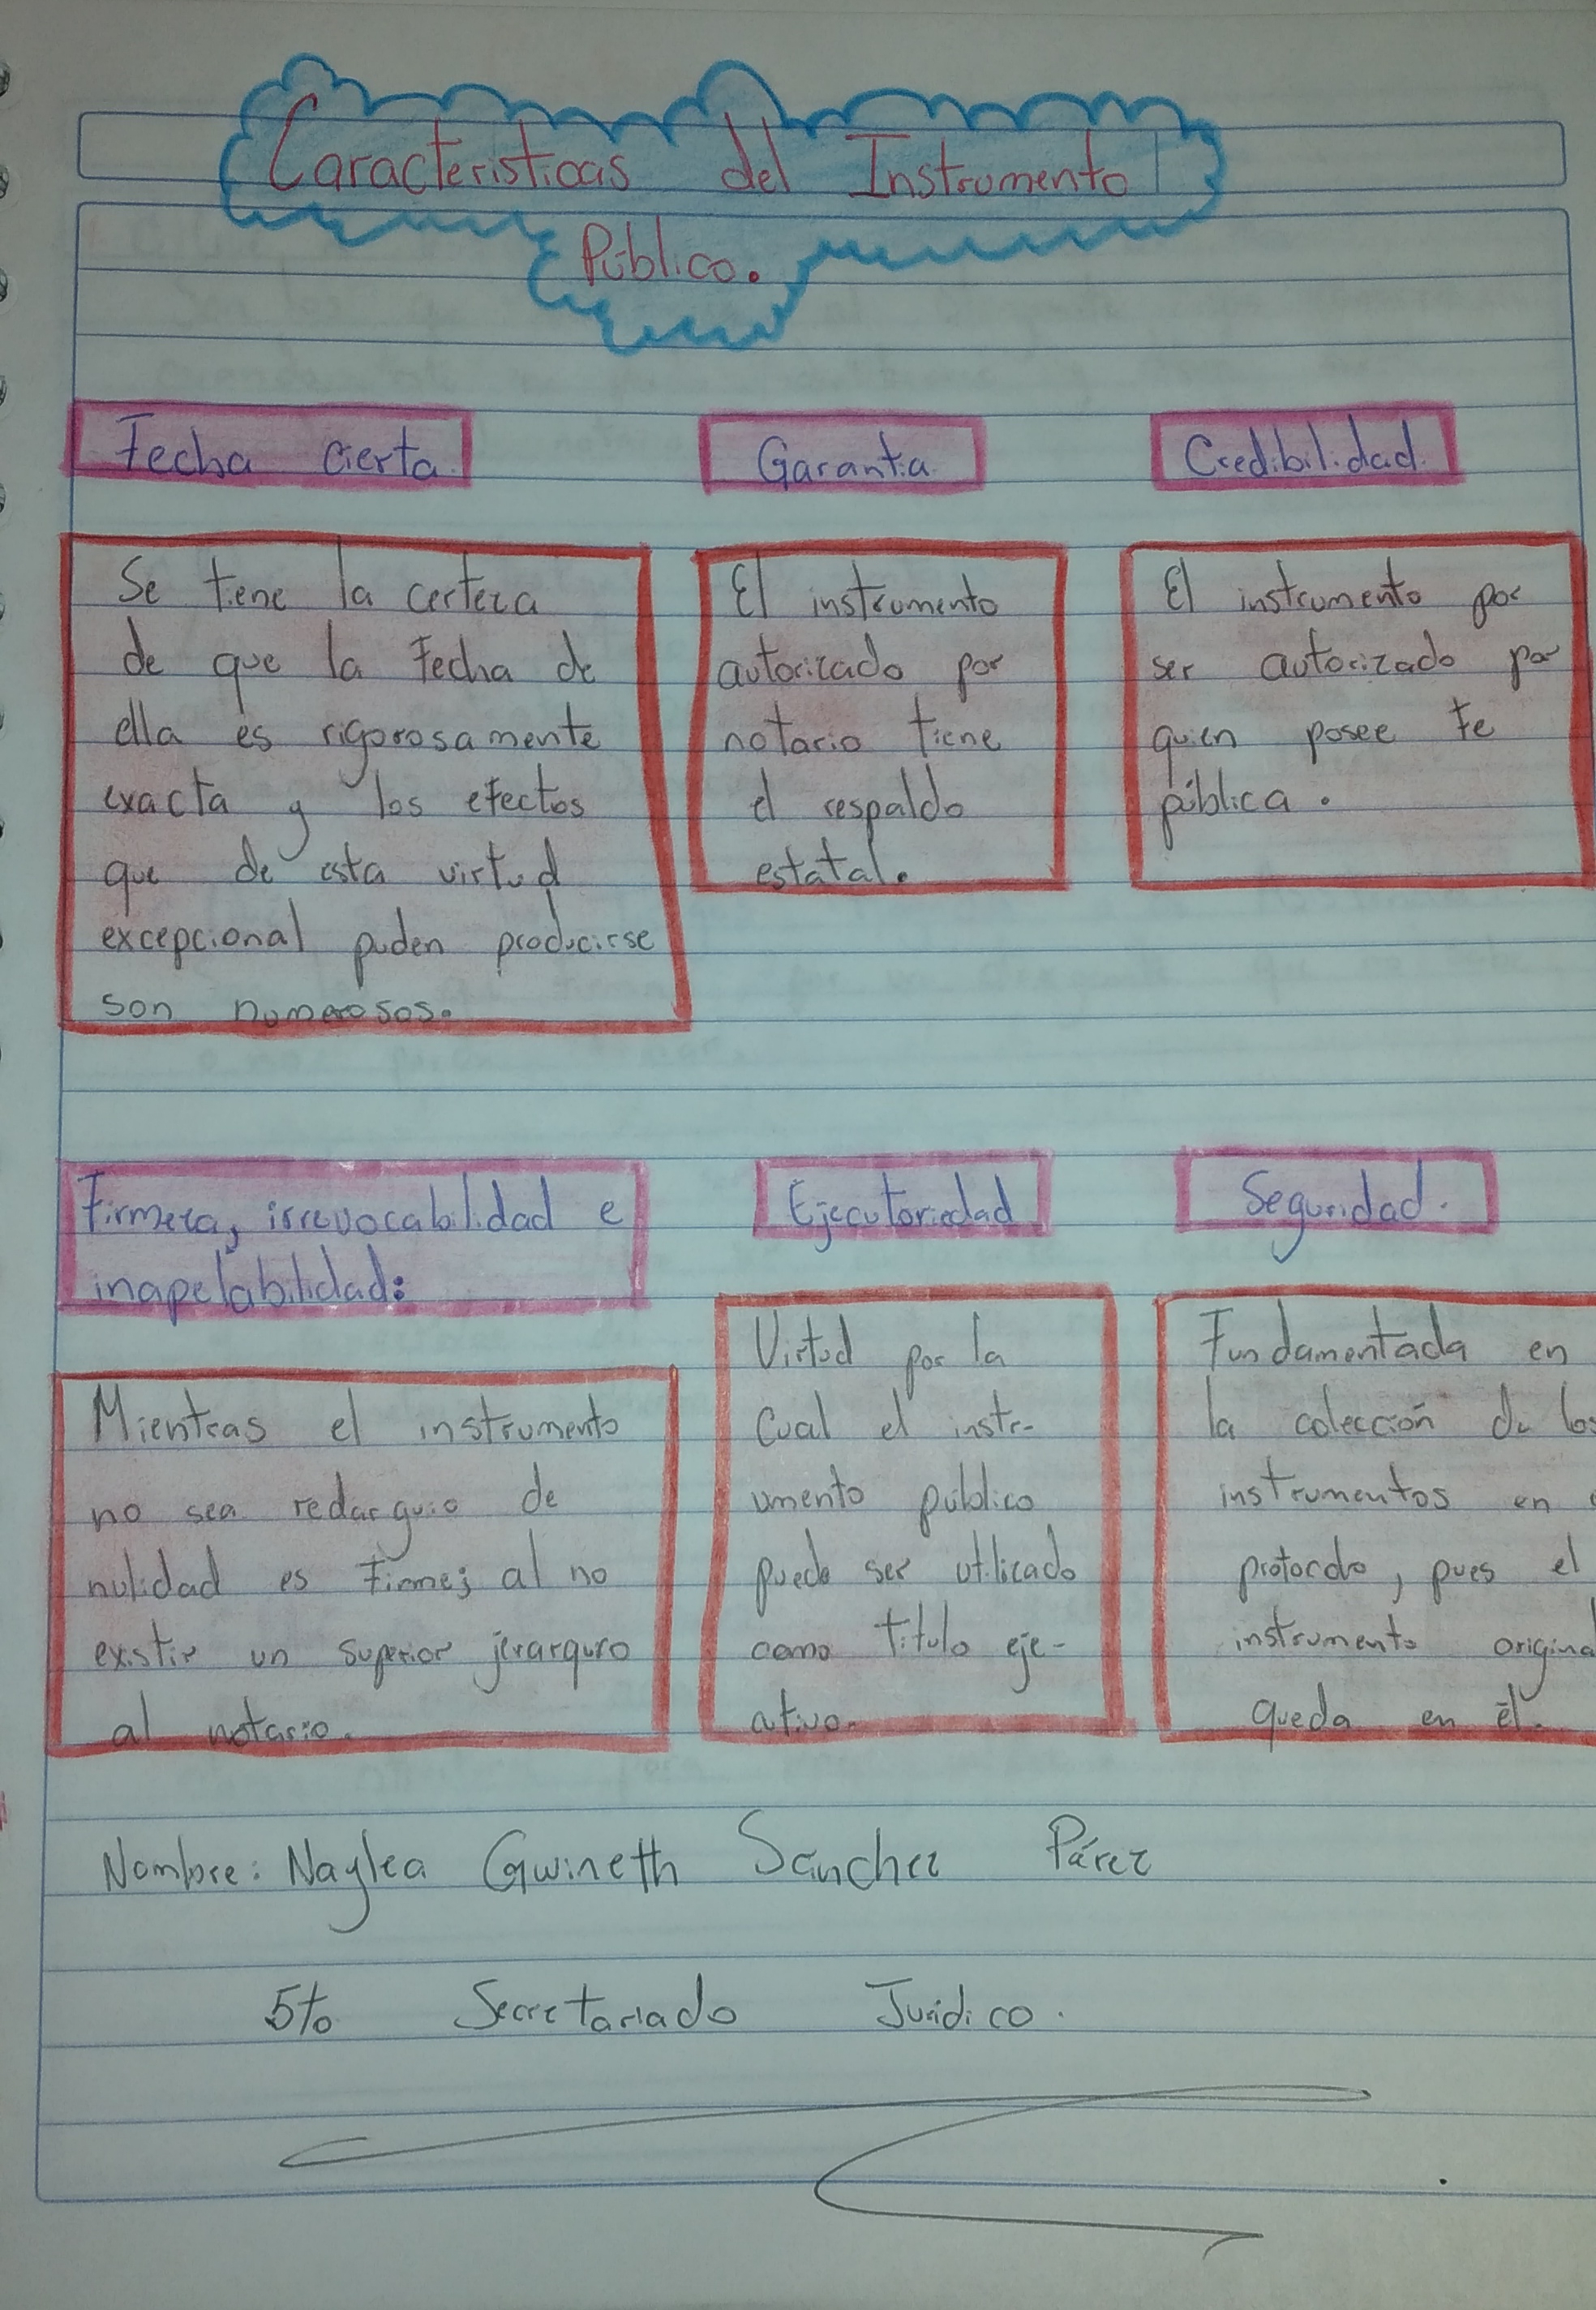 Caracteristicas del Instrumento
Público.
Fecha cierta.
Se tiene la certeza
de que la fecha de
ella es rigorosamente
exacta y los efectos
que de esta virtud
excepcional puden producirse
son numerosos.
Garantia.
El instrumento
autorizado por
notario tiene
el respaldo
estatal.
Credibilidad.
El instrumento por
ser autorizado por
quien posee fe
pública.
Firmeza, irrevocabilidad e
inapelabilidad:
Mientras el instrumento
no sea redarguio de
nulidad es firme; al no
existir un superior jerarquro
al notario.
Ejecutoriedad
Virtud por la
cual el instr-
umento público
puede ser utilizado
como titulo eje-
cutivo.
Seguridad.
Fundamentada en
la colección de los
instrumentos en
protocolo, pues el
instrumento original
queda en él.
Nombre: Naylea Gwineth Sánchez Pérez
5to Secretariado Juridico.